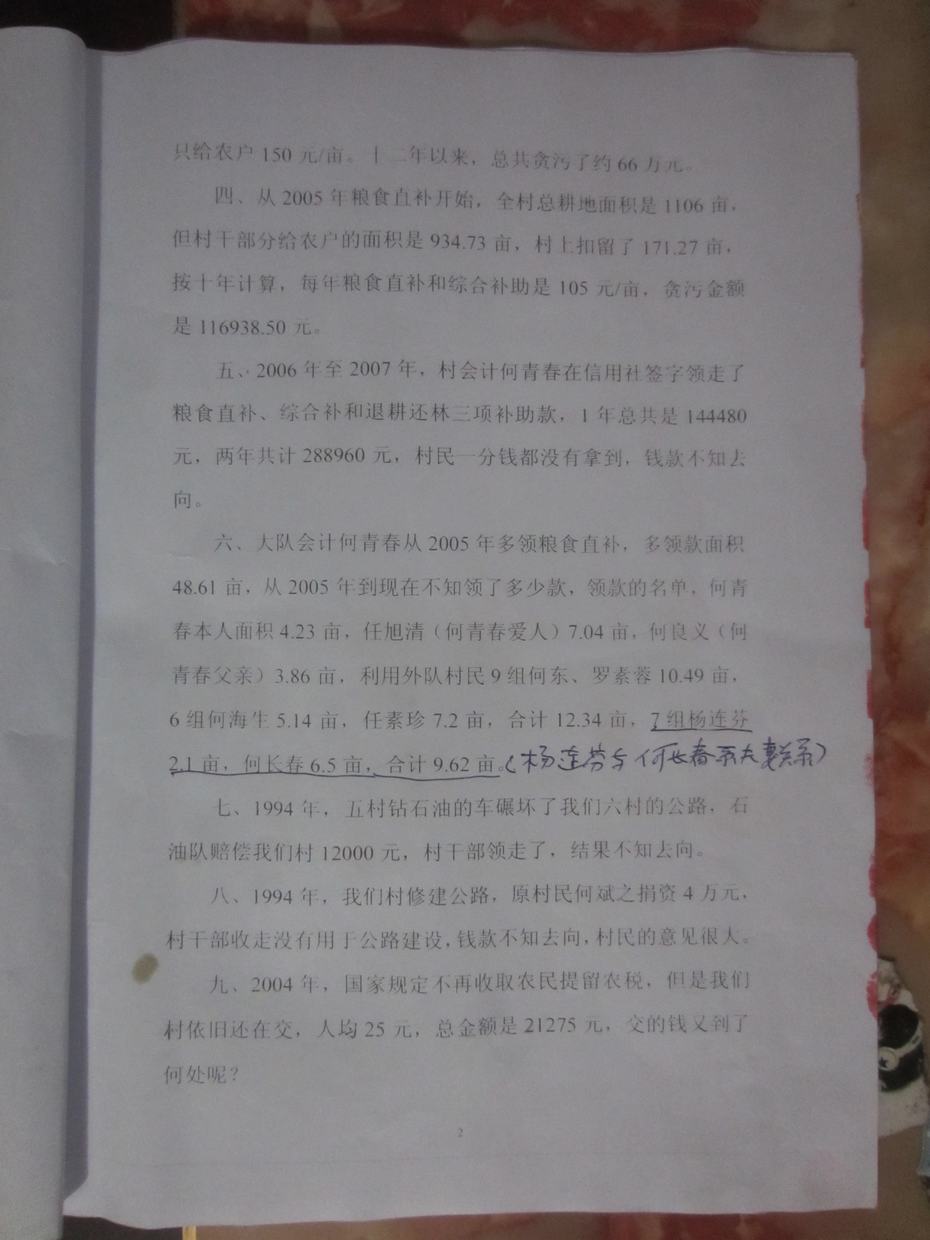 只给农户 150 元/亩。十二年以来，总共贪污了约 66 万元。
四、从 2005 年粮食直补开始，全村总耕地面积是 1106 亩，
但村干部分给农户的面积是 934.73 亩，村上扣留了 171.27 亩，
按十年计算，每年粮食直补和综合补助是 105 元/亩，贪污金额
是 116938.50 元。
五、2006 年至 2007 年，村会计何青春在信用社签字领走了
粮食直补、综合补和退耕还林三项补助款，1 年总共是 144480
元，两年共计 288960 元，村民一分钱都没有拿到，钱款不知去
向。
六、大队会计何青春从 2005 年多领粮食直补，多领款面积
48.61 亩，从 2005 年到现在不知领了多少款，领款的名单，何青
春本人面积 4.23 亩，任旭清（何青春爱人）7.04 亩，何良义（何
青春父亲）3.86 亩，利用外队村民 9 组何东、罗素蓉 10.49 亩，
6 组何海生 5.14 亩，任素珍 7.2 亩，合计 12.34 亩，7 组杨连芬
2.1 亩，何长春 6.5 亩，合计 9.62 亩。（杨连芬与何长春系夫妻关系）
七、1994 年，五村钻石油的车碾坏了我们六村的公路，石
油队赔偿我们村 12000 元，村干部领走了，结果不知去向。
八、1994 年，我们村修建公路，原村民何斌之捐资 4 万元，
村干部收走没有用于公路建设，钱款不知去向，村民的意见很大。
九、2004 年，国家规定不再收取农民提留农税，但是我们
村依旧还在交，人均 25 元，总金额是 21275 元，交的钱又到了
何处呢？
2